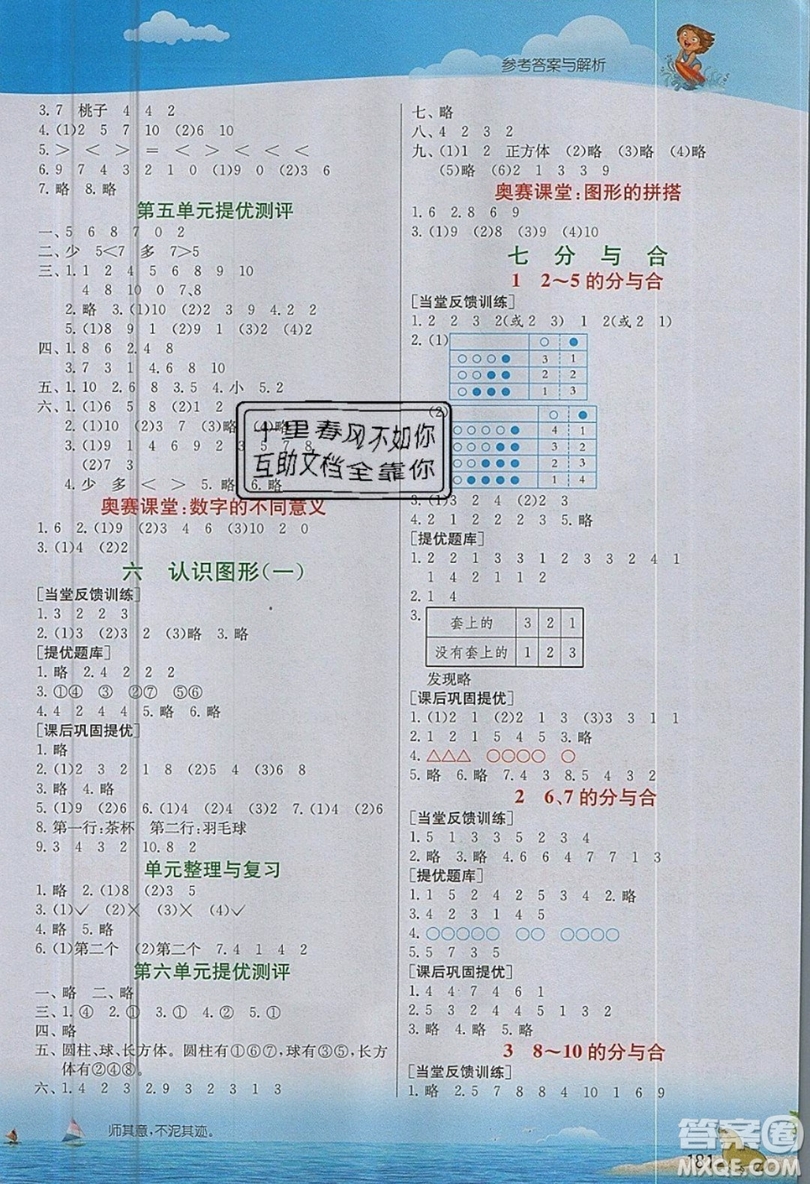 参考答案与解析
3. 7 桃子 4 4 2
4. (1)2 5 7 10 (2)6 10
5. > < > = < > < >
6. 9 7 4 3 2 1 0 (1)9 (2)3 6
7. 略 8. 略
第五单元提优测评
一、5 6 8 7 0 2
二、少 5<7 多 7>5
三、1. 1 2 3 4 5 6 7 8 9
4 8 10 0 7、8
2. 略 3. (1)5 2 (2)2 3 9 4. 2 2
5. (1)8 9 1 (2)9 1 (3)5 9
四、1. 8 6 2. 4 8
3. 7 3 1 4. 8 3 8 0
五、1. 10 2. 6 8 3. 5 4. 小 5. 2
六、1. (1)6 5 8 (2)1 2
2. (1)10 (2)2 (3)4 (4)略
3. (1)9 1 4 6 9 2 3 5 7 8
(2)7 3
4. 少 多 < > 5. 略 6. 略
奥赛课堂:数字的不同意义
1. 6 2. (1)9 (2)3 4 6 (3)10 2 0
3. (1)4 (2)2
六 认识图形(一)
[当堂反馈训练]
1. 3 2 2 3
2. (1)3 (2)3 2 (3)略 3. 略
[提优题库]
1. 略 2. 4 2 2 2
3. ①④ ③ ②⑦ ⑤⑥
4. 4 2 4 4 5. 略
[课后巩固提优]
1. 略
2. (1)2 3 2 1 8 (2)1 3 3 1 8
3. 略 4. 略
5. (1)7 (2)9 6. (1)4 (2)4 7. (1)7 (2)6
8. 第一行:茶杯 第二行:羽毛球
9. 3 4 3 2 10. 8 2
单元整理与复习
1. 略 2. (1)8 (2)3 5
3. (1)✓ (2)× (3)× (4)✓
4. 略 5. 略
6. (1)第二个 (2)第二个 7. 4 1 4 2
第六单元提优测评
一、略 二、略
三、1. ④ 2. ① 3. ① 4. ③ 5. ①
四、略
五、圆柱、球、长方体。圆柱有①⑥⑦,球有③⑤,长方
体有②④⑧。
六、1. 4 2 3 2. 9 3 2 3 3. 2 1 3 2
师其意,不泥其迹。
七、略
八、4 2 3 2
九、(1)1 2 正方体 (2)略 (3)略 (4)略
(5)略 (6)2 1 3 3 9
奥赛课堂:图形的拼搭
1. 6 2. 8 6 9
3. (1)6 (2)9 (3)9 (4)10
七 分 与 合
1 2~5的分与合
[当堂反馈训练]
1. 2 2 3 2(或2 3) 1 2(或2 1)
2. (1) ○ ●
○○○● 3 1
○○●● 2 2
○●●● 1 3
(2) ○ ●
○○○○● 4 1
○○○●● 3 2
○○●●● 2 3
○●●●● 1 4
3. (1)3 2 4 (2)2 3
4. 2 1 2 2 2 2 3 5. 略
[提优题库]
1. 2 2 1 3 3 1 2 3 3 2 4 1
1 4 2 1 1 2
2. 1 4
3. 套上的 3 2 1
没有套上的 1 2 3
发现略
[课后巩固提优]
1. (1)2 1 (2)2 1 3 (3)5 2 3
2. 1 2 1 5 4 5 3. 略
4. △△△ ○○○○ ○
5. 略 6. 略 7. 4 3 8. 5 4 3 2
2 6、7的分与合
[当堂反馈训练]
1. 5 1 3 3 5 2 3 4
2. 略 3. 略 4. 5 6 4 7 7 1 3
[提优题库]
1. 1 5 2 4 2 5 3 4 2. 略
3. 4 2 3 1 4 5
4. ○○○○○ ○○ ○○○○
5. 5 7 3 5
[课后巩固提优]
1. 4 4 7 4 6 1
2. 5 2 5 4 5 4
3. 略 4. 略 5. 略
3 8~10的分与合
[当堂反馈训练]
1. 略 2. 7 8 8 4 10 4 9 6 9
181
十里春风不如你
互助文档全靠你
答案圈
MXQE.COM